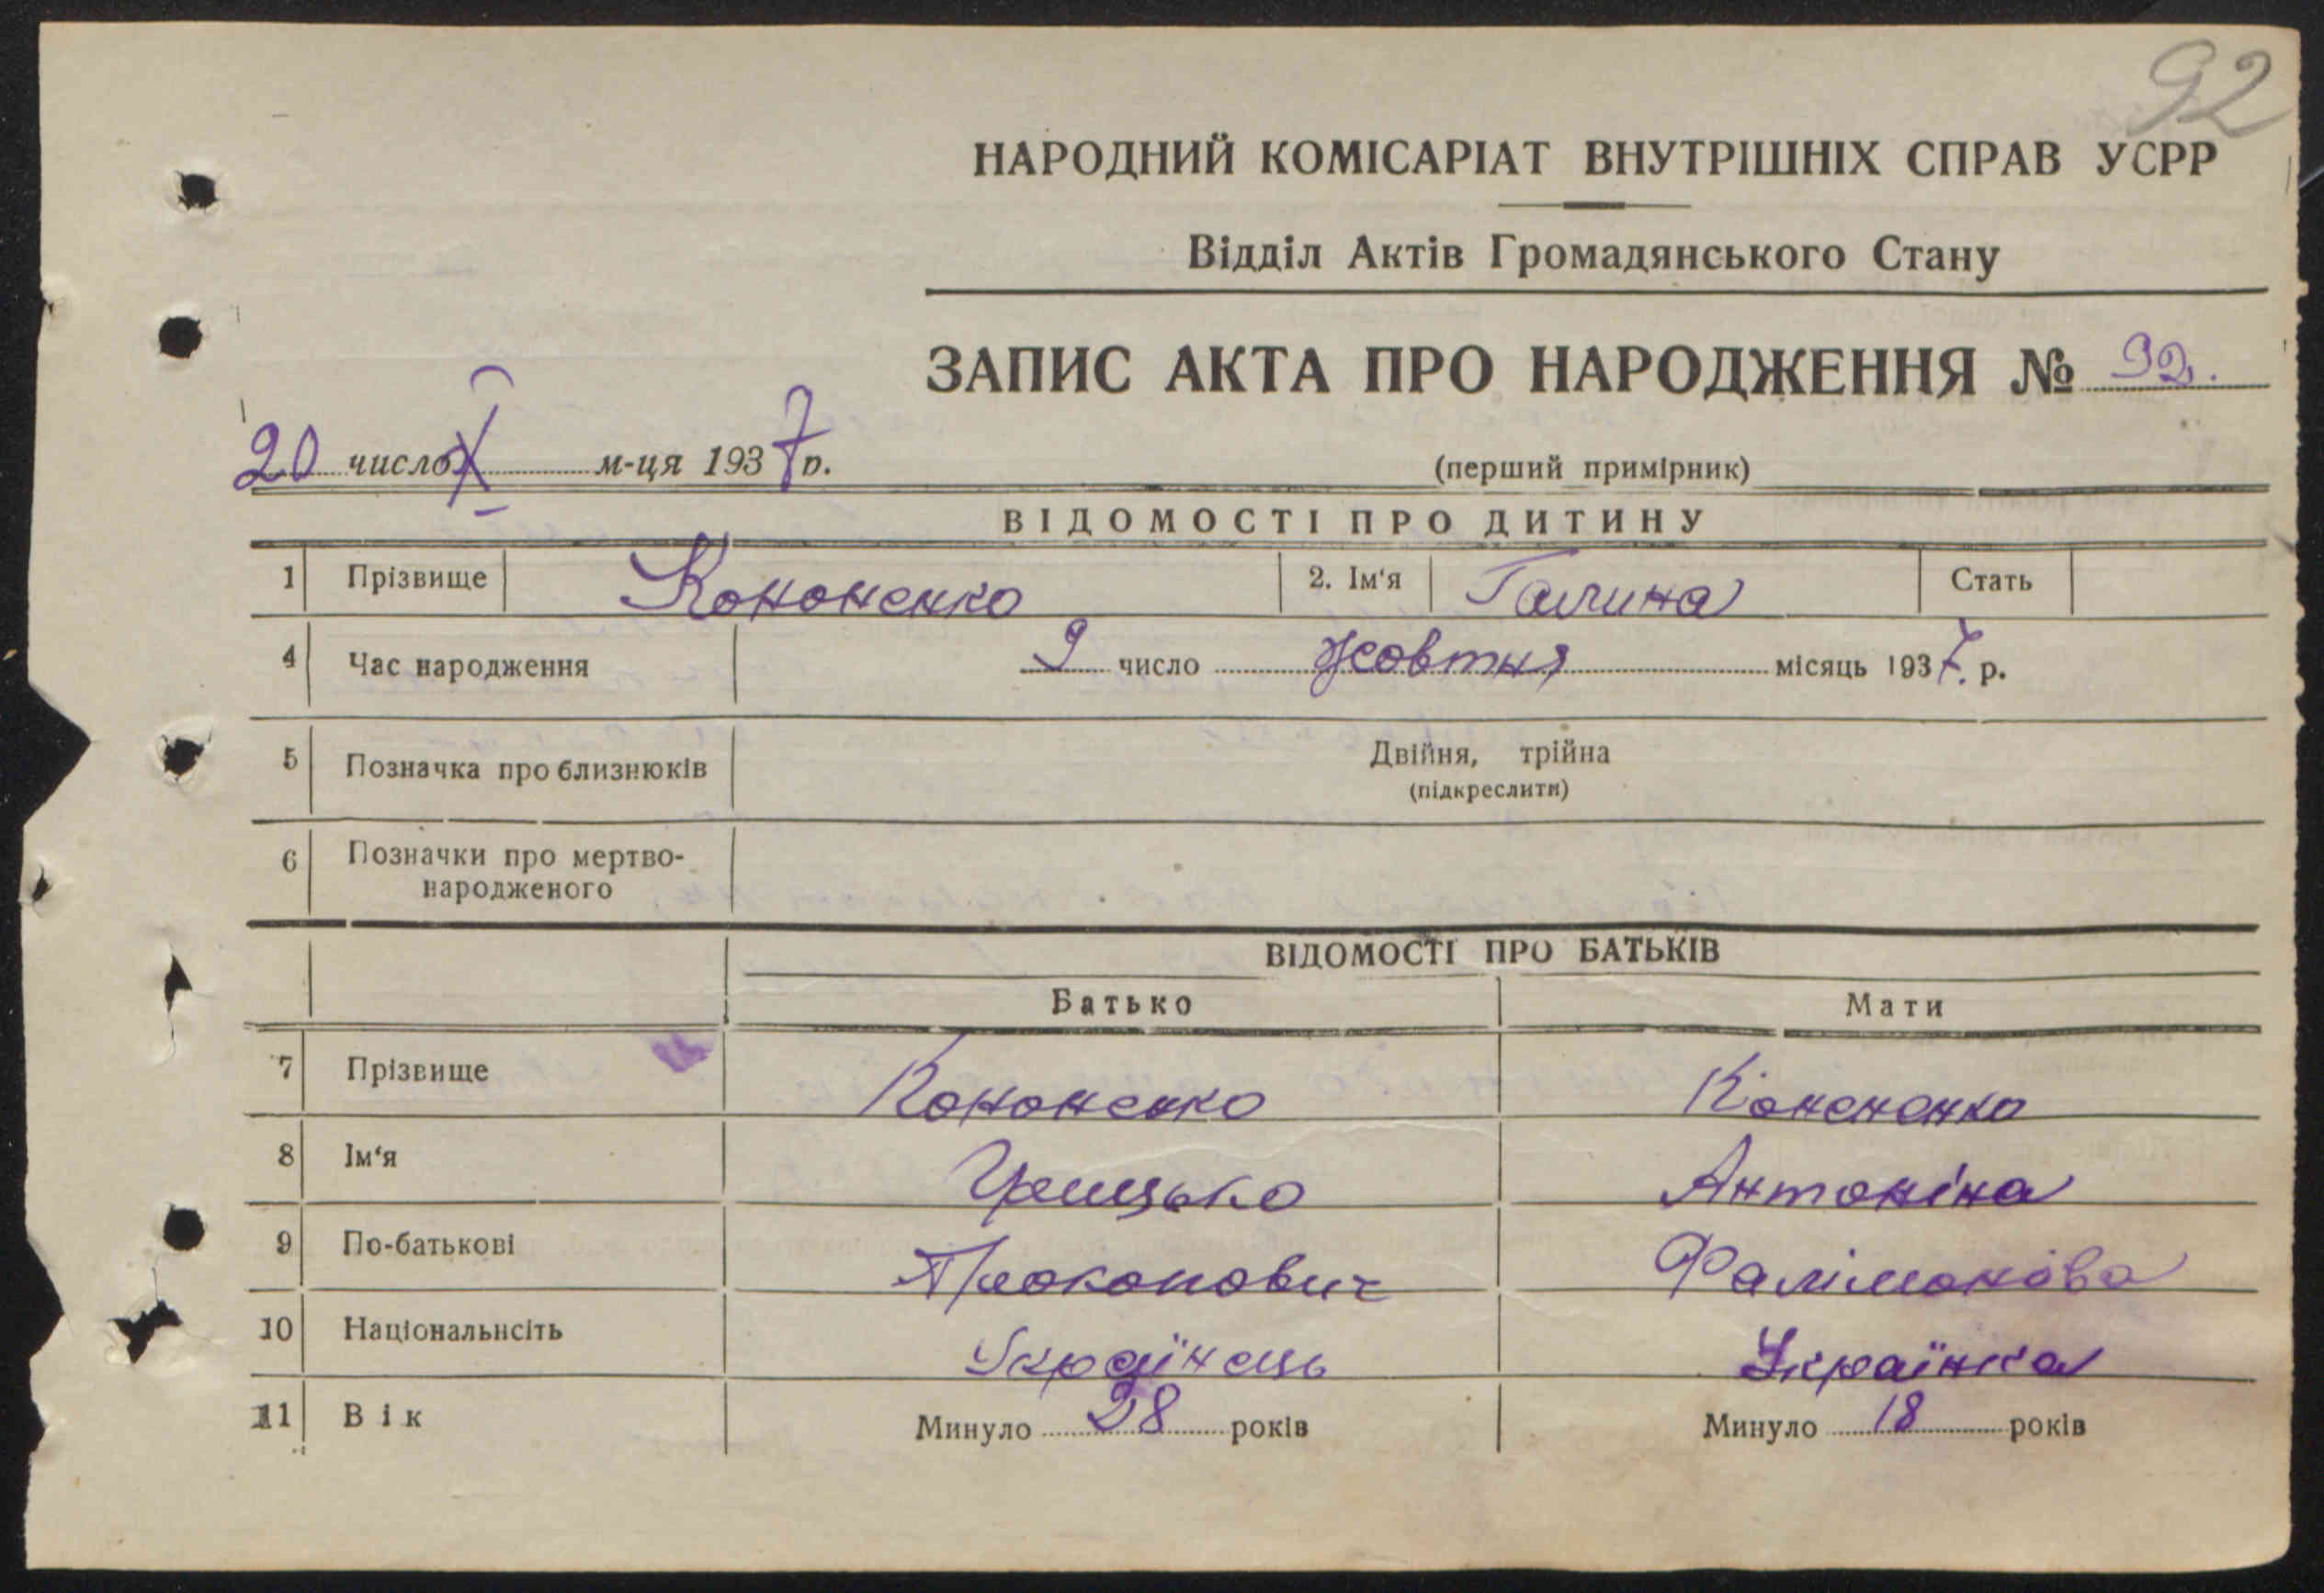 92
НАРОДНИЙ КОМІСАРІАТ ВНУТРІШНІХ СПРАВ УСРР
Відділ Актів Громадянського Стану
ЗАПИС АКТА ПРО НАРОДЖЕННЯ № 92.
20 число X м-ця 1937 р.
(перший примірник)
ВІДОМОСТІ ПРО ДИТИНУ
1 Прізвище Кононенко 2. Ім'я Галина Стать
4 Час народження 9 число жовтня місяць 1937. р.
5 Позначка про близнюків Двійня, трійна
(підкреслити)
6 Позначки про мертво-
народженого
ВІДОМОСТІ ПРО БАТЬКІВ
Батько Мати
7 Прізвище Кононенко Кононенко
8 Ім'я Грицько Антоніна
9 По-батькові Прокопович Фалімонова
10 Національнсіть Українець Українка
11 Вік Минуло 28 років Минуло 18 років